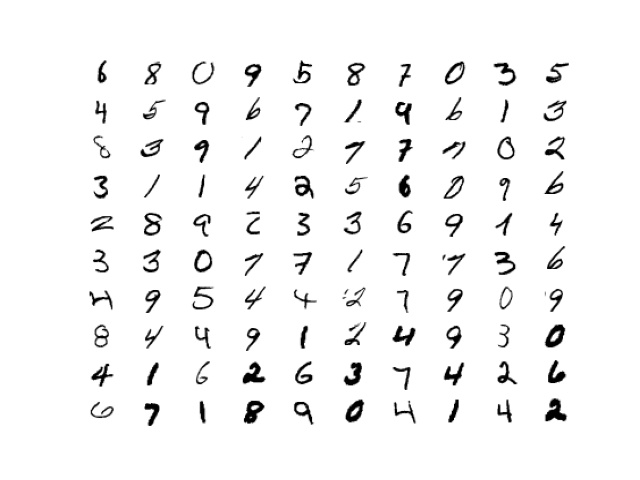 6 8 0 9 5 8 7 0 3 5
4 5 9 6 7 1 9 6 1 3
8 3 9 1 2 7 7 7 0 2
3 1 1 4 2 5 6 0 9 6
2 8 9 2 3 3 6 9 1 4
3 3 0 7 7 1 7 7 3 6
4 9 5 4 4 2 7 9 0 9
8 4 4 9 1 2 4 9 3 0
4 1 6 2 6 3 7 4 2 6
6 7 1 8 9 0 4 1 4 2